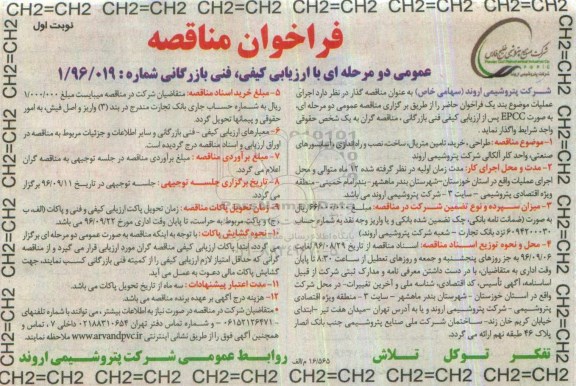 CH2=CH2 CH2=CH2 CH2=CH2 CH2=CH2 CH2=CH2 CH2=CH2 CH2=CH2
نوبت اول
فراخوان مناقصه
شرکت صنایع پتروشیمی خلیج فارس
عمومی دو مرحله ای با ارزیابی کیفی، فنی بازرگانی شماره : ۱/۹۶/۰۱۹
شرکت پتروشیمی اروند (سهامی خاص) به عنوان مناقصه گذار در نظر دارد اجرای
عملیات موضوع بند یک فراخوان حاضر را از طریق برگزاری مناقصه عمومی دو مرحله ای،
به صورت EPCC پس از ارزیابی کیفی فنی بازرگانی ، مناقصه گران به یک شخص حقوقی
واجد شرایط واگذار نماید.
۱- موضوع مناقصه: طراحی، خرید تامین متریال، ساخت، نصب و راه اندازی رانسفورمر های
صنعتی، واحد کلر آلکالی شرکت پتروشیمی اروند
۲- مدت و محل اجرای کار: مدت زمان اولیه در نظر گرفته شده ۱۲ ماه متوالی و محل
اجرای عملیات واقع در استان خوزستان- شهرستان بندر ماهشهر- بندر امام خمینی- منطقه
ویژه اقتصادی پتروشیمی - سایت ۳ - شرکت پتروشیمی اروند می باشد.
۳- میزان سپرده و نوع تضمین شرکت در مناقصه: ریال
به صورت (ضمانت نامه بانکی، چک تضمین شده بانکی و یا واریز وجه نقد به شماره حساب
۶۰۹۴۲۰۰۰۳۰ نزد بانک تجارت - شعبه شرکت پتروشیمی اروند)
۴- محل و نحوه توزیع اسناد مناقصه: اسناد مناقصه از تاریخ ۹۶/۰۸/۲۹ لغایت
۹۶/۰۹/۰۶ به جز روزهای پنجشنبه و جمعه و روزهای تعطیل از ساعت ۸:۳۰ تا پایان
وقت اداری به متقاضیان، با در دست داشتن معرفی نامه و مدارک ثبتی شرکت از قبیل
اساسنامه، آگهی تأسیس، کد اقتصادی، شناسه ملی و آخرین تغییرات- در محل شرکت
واقع در استان خوزستان - شهرستان بندر ماهشهر - سایت ۳ - منطقه ویژه اقتصادی
پتروشیمی - شرکت پتروشیمی اروند و یا به آدرس تهران -میدان هفت تیر -ابتدای
خیابان کریم خان زند- ساختمان شرکت ملی صنایع پتروشیمی جنب بانک انصار
پلاک ۴۶ طبقه نهم ارائه می گردد.
۵- مبلغ خرید اسناد مناقصه: متقاضیان شرکت در مناقصه میبایست مبلغ ۱/۰۰۰/۰۰۰
ریال به شماره حساب جاری بانک تجارت مندرج در بند (۳) واریز و اصل فیش، به امور
حقوقی و پیمانها تحویل گردد.
۶- معیارهای ارزیابی کیفی - فنی بازرگانی و سایر اطلاعات و جزئیات مربوط به مناقصه در
اوراق ارزیابی و اسناد مناقصه درج گردیده است.
۷- مبلغ برآوردی مناقصه : مبلغ برآوردی مناقصه در جلسه توجیهی به مناقصه گران
اعلام می گردد.
۸- تاریخ برگزاری جلسه توجیهی : جلسه توجیهی در تاریخ ۹۶/۰۹/۱۱ برگزار
می گردد.
۹- زمان تحویل پاکات مناقصه: زمان تحویل پاکت ارزیابی کیفی و فنی و پاکات (الف، ب
،ج) و پاکت مربوط به حراست، تا پایان وقت اداری مورخ ۹۶/۰۹/۲۲ می باشد.
۱۰- نحوه گشایش پاکات: با توجه به اینکه مناقصه به صورت عمومی دو مرحله ای برگزار
می گردد، ابتدا پاکات ارزیابی کیفی مناقصه گران مورد ارزیابی قرار می گیرد و از مناقصه
گرانی که حداقل امتیاز لازم ارزیابی کیفی را از کمیته فنی بازرگانی کسب نمایند، جهت
گشایش پاکات مالی دعوت به عمل می آید.
۱۱- مدت اعتبار پیشنهادات : سه ماه از تاریخ تحویل پاکات می باشد.
۱۲- هزینه درج آگهی بر عهده برنده مناقصه می باشد.
*متقاضیان شرکت در مناقصه در صورت نیاز به اطلاعات بیشتر، می توانند با شماره تلفنهای
۰۶۱۵۲۱۲۶۴۷۱ - و شماره تماس دفتر تهران ۰۲۱۸۸۳۱۰۶۵۴ داخلی ۷ ، تماس و
همچنین آگهی فوق را از طریق نشانی اینترنتی www.arvandpvc.ir ملاحظه نمایند.
تفکر توکل تلاش
۱۶/۵۶۵ م الف
روابط عمومی شرکت پتروشیمی اروند
CH2=CH2 CH2=CH2 CH2=CH2 CH2=CH2 CH2=CH2 CH2=CH2 CH2=CH2